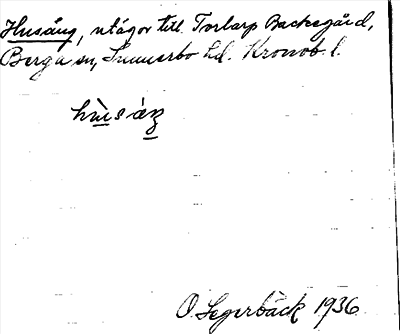 Husäng, utägor till Torlarp Backegård,
Berga sn, Sunnerbo hd. Kronob. l.
hùsäŋ
O. Segerbäck 1936